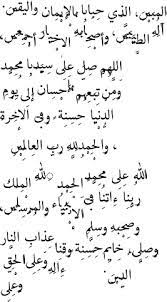 المبين، الذي حبانا بالإيمان واليقين.
آله الطيبين، وأصحابه الأخيار أجمعين،
اللهم صل على سيدنا محمد
ومن تبعهم بإحسان إلى يوم
الدنيا حسنة وفي الآخرة
، والحمد لله رب العالمين
الله على محمد الحمد لله الملك
ربنا ءاتنا في الأنبياء والمرسلين،
وصحبه وسلم
وصلى، خاتم حسنة وقنا عذاب النار
الدين ءاله وعلى الحق
وعلى